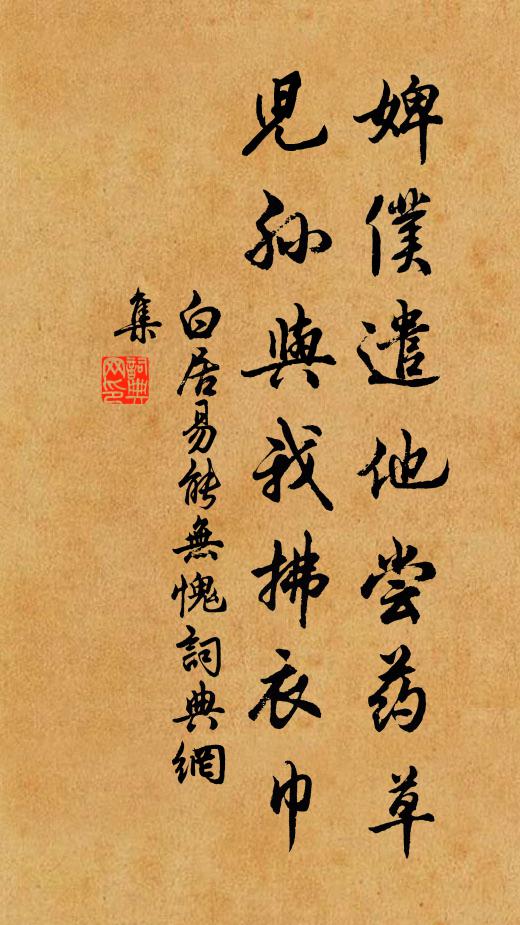 婢僕遣他尝药草
児孙與我拂衣巾
白居易能無愧詞典網
集
詞典网印